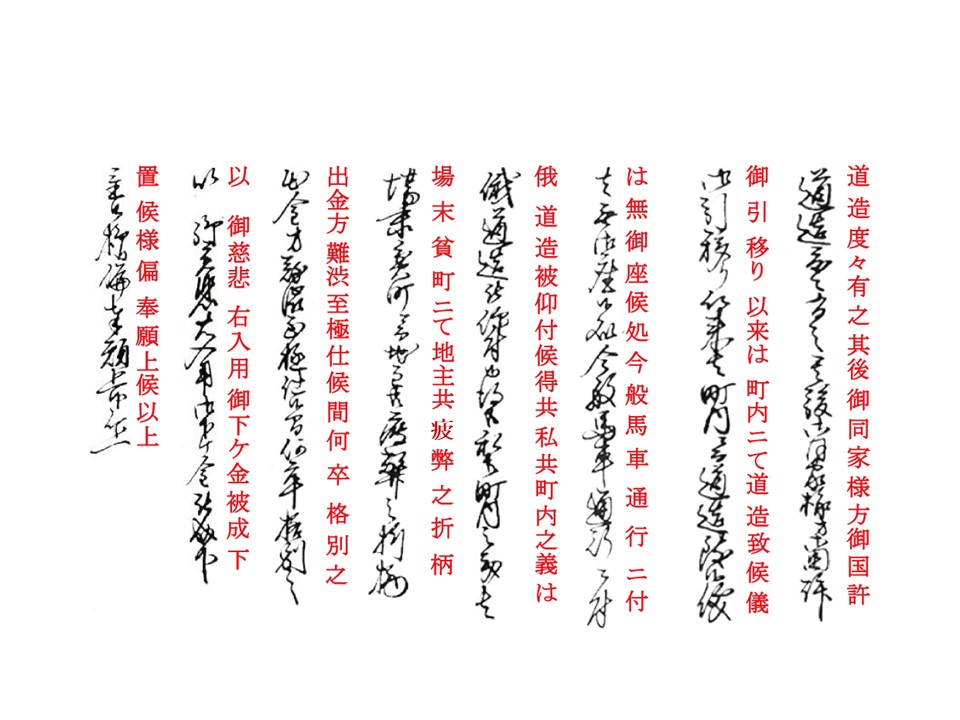 道造度々有之其後御同家様方御国許
御引移り以来は町内ニて道造致候儀
は無御座候処今般馬車通行ニ付
俄道造被仰付候得共私共町内之義は
場末貧町ニて地主共疲弊之折柄
出金方難渋至極仕候間何卒格別之
以御慈悲右入用御下ケ金被成下
置候様偏奉願上候以上